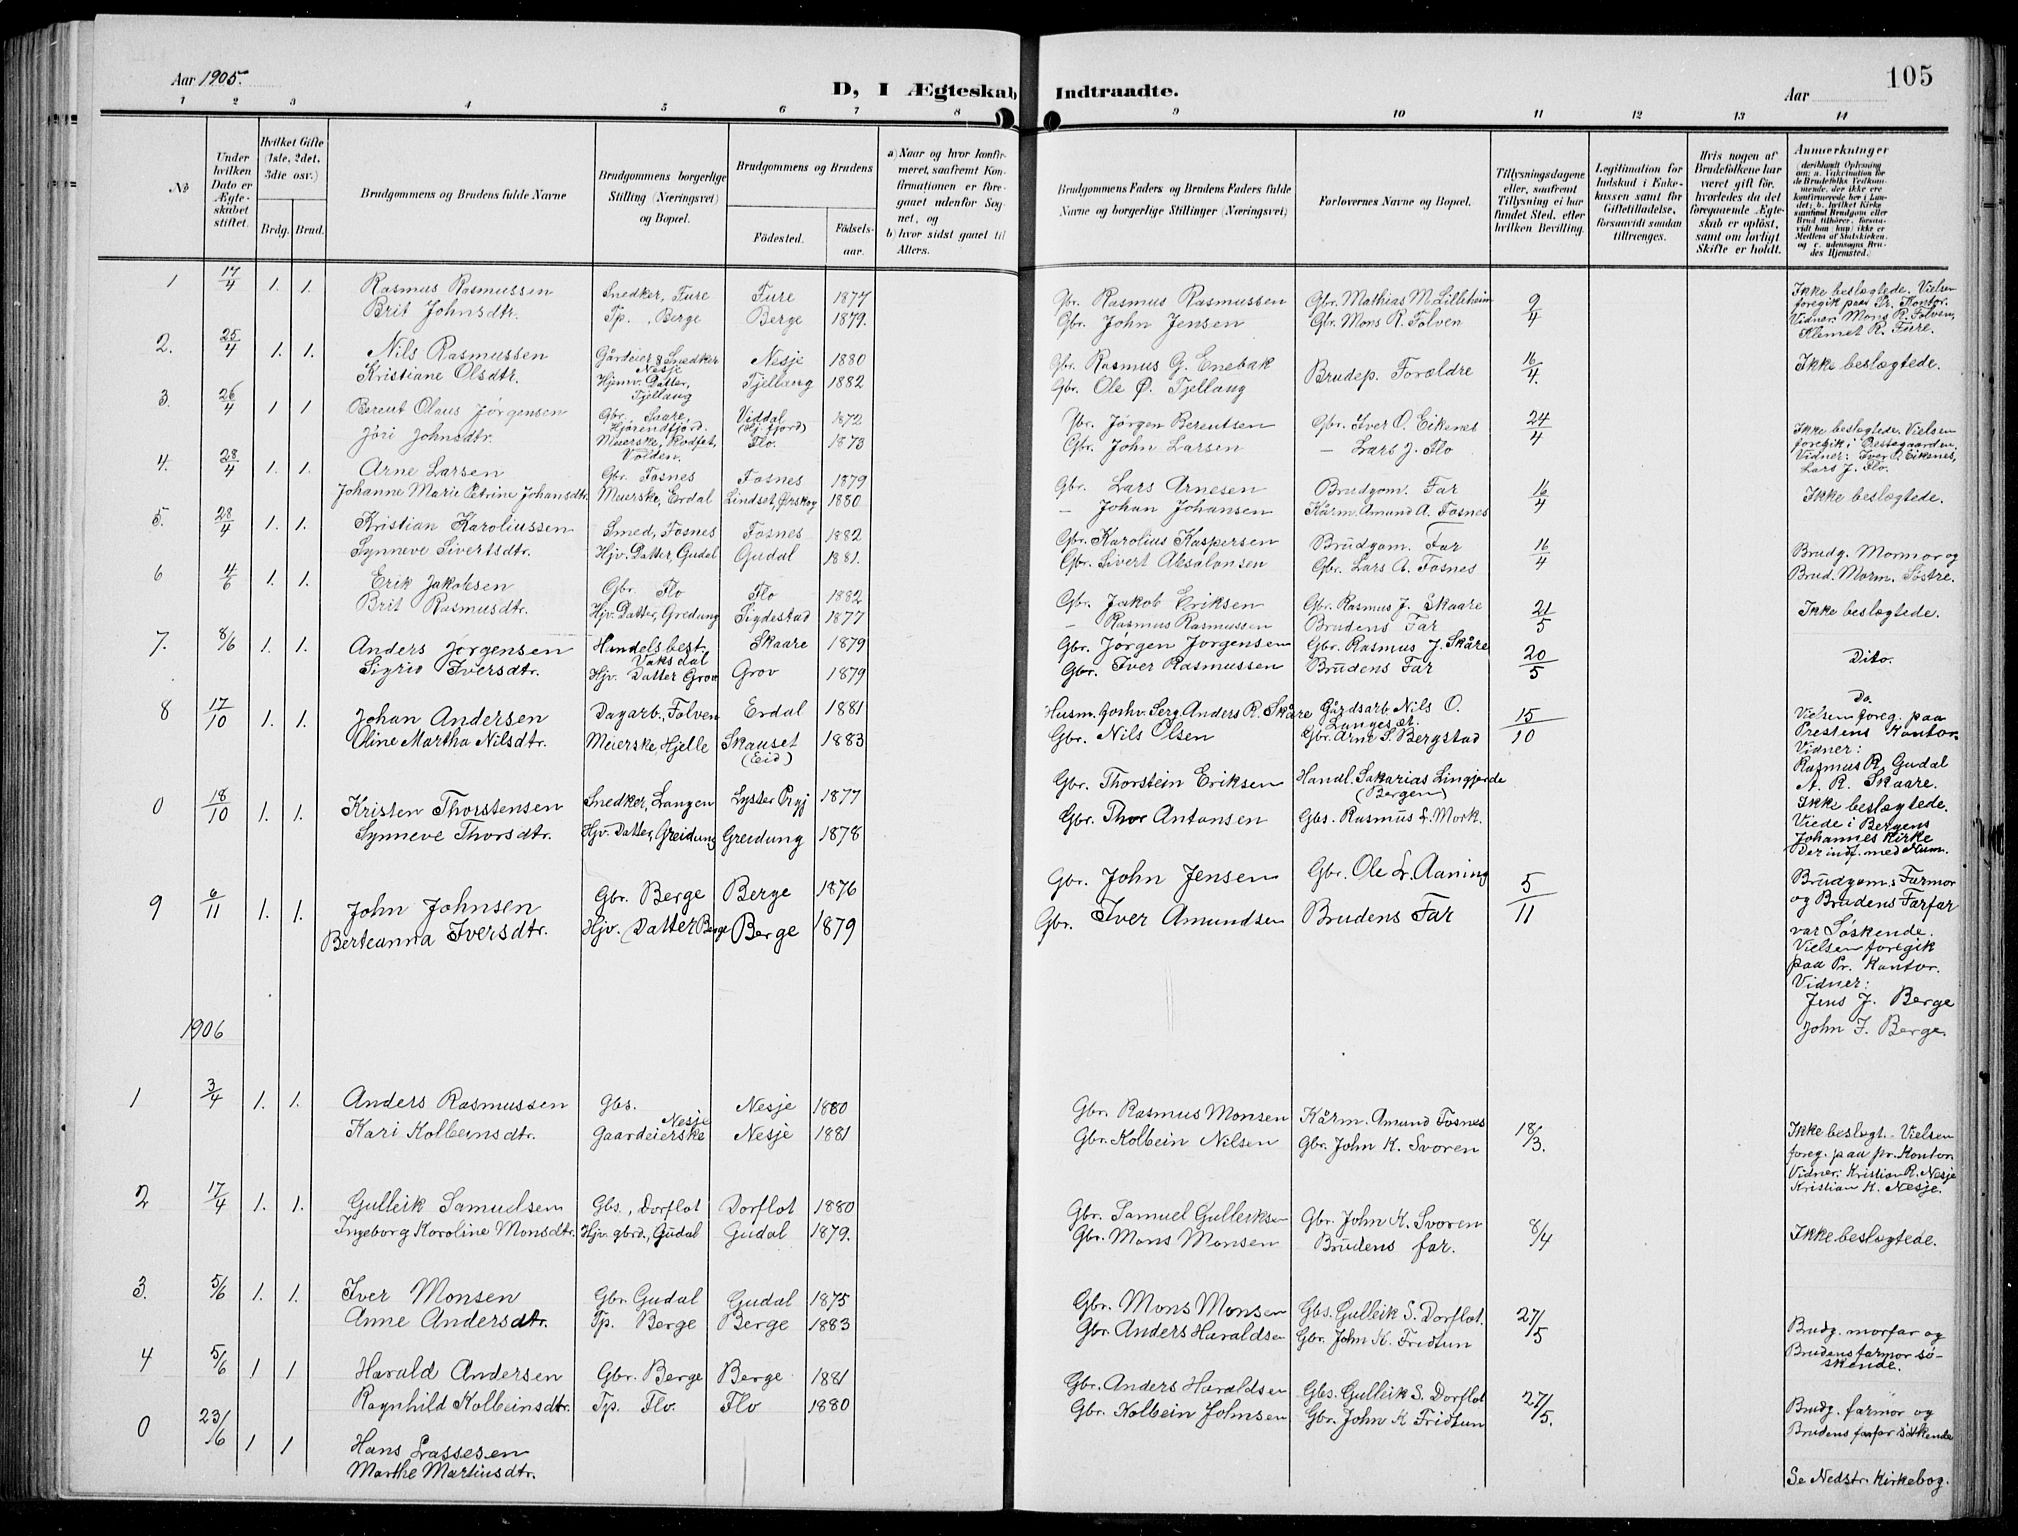 Aar 1905.
D, I Ægteskab Indtraadte.
Aar
105
1 2 3 4 5 6 7 8 9 10 11 12 13 14
No
Under hvilken Dato er Ægteskabet stiftet.
Hvilket Gifte (1ste, 2det, 3die osv.)
Brdg. Brud.
Brudgommens og Brudens fulde Navne
Brudgommens borgerlige Stilling (Næringsvei) og Bopæl.
Brudgommens og Brudens
Fødested.
Fødselsaar.
a) Naar og hvor konfirmeret, saafremt Konfirmationen er foregaaet udenfor Sognet, og
b) hvor sidst gaaet til Alters.
Brudgommens Faders og Brudens Faders fulde Navne og borgerlige Stillinger (Næringsvei)
Forlovernes Navne og Bopæl.
Tillysningsdagene eller, saafremt Tillysning ei har fundet Sted, efter hvilken Bevilling.
Legitimation for Indskud i Enkekassen samt for Giftetilladelse, forsaavidt saadan tiltrænges.
Hvis nogen af Brudefolkene har været gift før, hvorledes da det foregaaende Ægteskab er opløst, samt om lovligt Skifte er holdt.
Anmærkninger
(deriblandt Oplysning om: a. Vakcination for de Brudefolks Vedkommende, der ikke ere konfirmerede her i Landet; b. hvilket Kirkesamfund Brudgom eller Brud tilhører, forsaavidt han (hun) ikke er Medlem af Statskirken, og c. udensogns Brudes Hjemsted.
1 17/4 1. 1. Rasmus Rasmussen Snedker, Fure Fure 1877 Gbr. Rasmus Rasmussen Gbr. Mathias M. Lilleheim 9/4 Ikke beslægtede. Vielsen
Brit Johnsdtr. Tp., Berge Berge 1879. Gbr. John Jensen Gbr. Mons R. Tolven foregik paa Pr. Kontor.
Vidner: Mons R. Folven,
Klemet R. Fure.
2. 25/4 1. 1. Nils Rasmussen Gårdeier & Snedker Nesje Nesje 1880 Gbr. Rasmus G. Enebak Brudep. Forældre 16/4. Ikke beslægtede.
Kristiane Olsdtr. Hjemv. Datter, Tjellaug Tjellaug 1882 Gbr. Ole Ø. Tjellaug
3. 26/4 1 1 Berent Olaus Jørgensen Gbr. Saare, Hjørendfjord. Viddal (Hj.fjord) 1872 Gbr. Jørgen Berentsen Gbr. Iver O. Eikenes 24/4 Ikke beslægtede. Vielsen
Jøri Johnsdtr. Meierske, Rodset, Volden. Flo. 1873 Gbr. John Larsen — Lars J. Flo foregik i Prestegaarden
Vidner: Iver O. Eikenes,
Lars J. Flo.
4. 28/4 1. 1. Arne Larsen Gbr. Fosnes Fosnes 1879 Gbr. Lars Arnesen Brudgom. Far 16/4 Ikke beslægtede.
Johanne Marie Petrine Johansdtr. Meierske, Erdal Lindset, Ørskog 1880 — Johan Johansen Kårm. Amund A. Fosnes
5. 28/4 1. 1. Kristian Karoliussen Smed, Fosnes Fosnes 1882 Gbr. Karolius Kaspersen Brudgom. Far 16/4 Brudg. Mormor og
Synneve Sivertsdtr. Hjv. Datter Gudal Gudal 1881. Gbr. Sivert Absalonsen Gbr. Lars A. Fosnes Brud. Morm. Søstre.
6 4/6 1. 1. Erik Jakobsen Gbr. Flo Flo 1882 Gbr. Jakob Eriksen Gbr. Rasmus J. Skaare 21/5 Ikke beslægtede.
Brit Rasmusdtr. Hjv. Datter, Gredung Sigdestad 1877 — Rasmus Rasmussen Brudens Far
7. 8/6 1. 1. Anders Jørgensen Handelsbest. Vaksdal Skaare 1879 Gbr. Jørgen Jørgensen Gbr. Rasmus J. Skåre 20/5 Dito.
Sigrid Iversdtr. Hjv. Datter Grov Grov 1879 Gbr. Iver Rasmussen Brudens Far
8 17/10 1. 1. Johan Andersen Dagarb., Folven Erdal 1881 Husm. Anders R. Skåre Gårdsarb. Nils O. Langeset 15/10 Do.
Oline Martha Nilsdtr. Meierske, Hjelle Skauset (Eid) 1883 Gbr. Nils Olsen Gbr. Arne S. Bergstad Vielsen foreg. paa
Prestens Kontor.
Vidner:
Rasmus R. Gudal
A. R. Skaare.
0 18/10 1. 1. Kristen Thorstensen Snedker, Langen Lyster Prgj 1877 Gbr. Thorstein Eriksen Handl. Sakarias Lingjerde (Bergen) Ikke beslægtede.
Synneve Thorsdtr. Hjv. Datter, Greidung Greidung 1878 Gbr. Thor Antonsen Gbs. Rasmus L. Mork. Viede i Bergens
Johannes Kirke
Der indf. med Num.
9 6/11 1. 1. John Johnsen Gbr. Berge Berge 1876 Gbr. John Jensen Gbr. Ole L. Aaning 5/11 Brudgom.s Farmor
Berteanna Iversdtr. Hjv. Datter Berge Berge 1879 Gbr. Iver Amundsen Brudens Far og Brudens Farfar
var Søskende.
Vielsen foregik
paa Pr. Kontor.
Vidner:
Jens J. Berge
John I. Berge.
1906
1 3/4 1. 1. Anders Rasmussen Gbs. Nesje Nesje 1880 Gbr. Rasmus Monsen Kårm. Amund Fosnes 18/3. Ikke beslægt. Vielsen
Kari Kolbeinsdtr. Gaardeierske Nesje 1881 Gbr. Kolbein Nilsen Gbr. John K. Svoren foreg. paa pr. Kontor.
Vidner: Kristian R. Nesje
Kristian K. Nesje.
2 17/4 1. 1. Gulleik Samuelsen Gbs., Dorflot Dorflot 1880 Gbr. Samuel Gulleiksen Gbr. John K. Svoren 8/4 Ikke beslægtede.
Ingeborg Karoline Monsdtr. Hjv. gbrd., Gudal Gudal 1879. Gbr. Mons Monsen Brudens far.
3. 5/6 1. 1. Iver Monsen Gbr. Gudal Gudal 1875 Gbr. Mons Monsen Gbs. Gulleik S. Dorflot. 27/5 Brudg. morfar og
Anne Andersdtr. Tp. Berge Berge 1883 Gbr. Anders Haraldsen Gbr. John K. Fridtun Brudens farmor sø-
skende.
4 5/6 1 1 Harald Andersen Gbr. Berge Berge 1881 Gbr. Anders Haraldsen Gbs. Gulleik S. Dorflot 27/5. Brudg. farmor og
Ragnhild Kolbeinsdtr. Tp. Flo. Flo 1880 Gbr. Kolbein Johnsen Gbr. John K Fridtun Brudens farfar søskende
0 23/6 1 1 Hans Lassesen
Marthe Martinsdtr. Se Nedstr. Kirkebog.